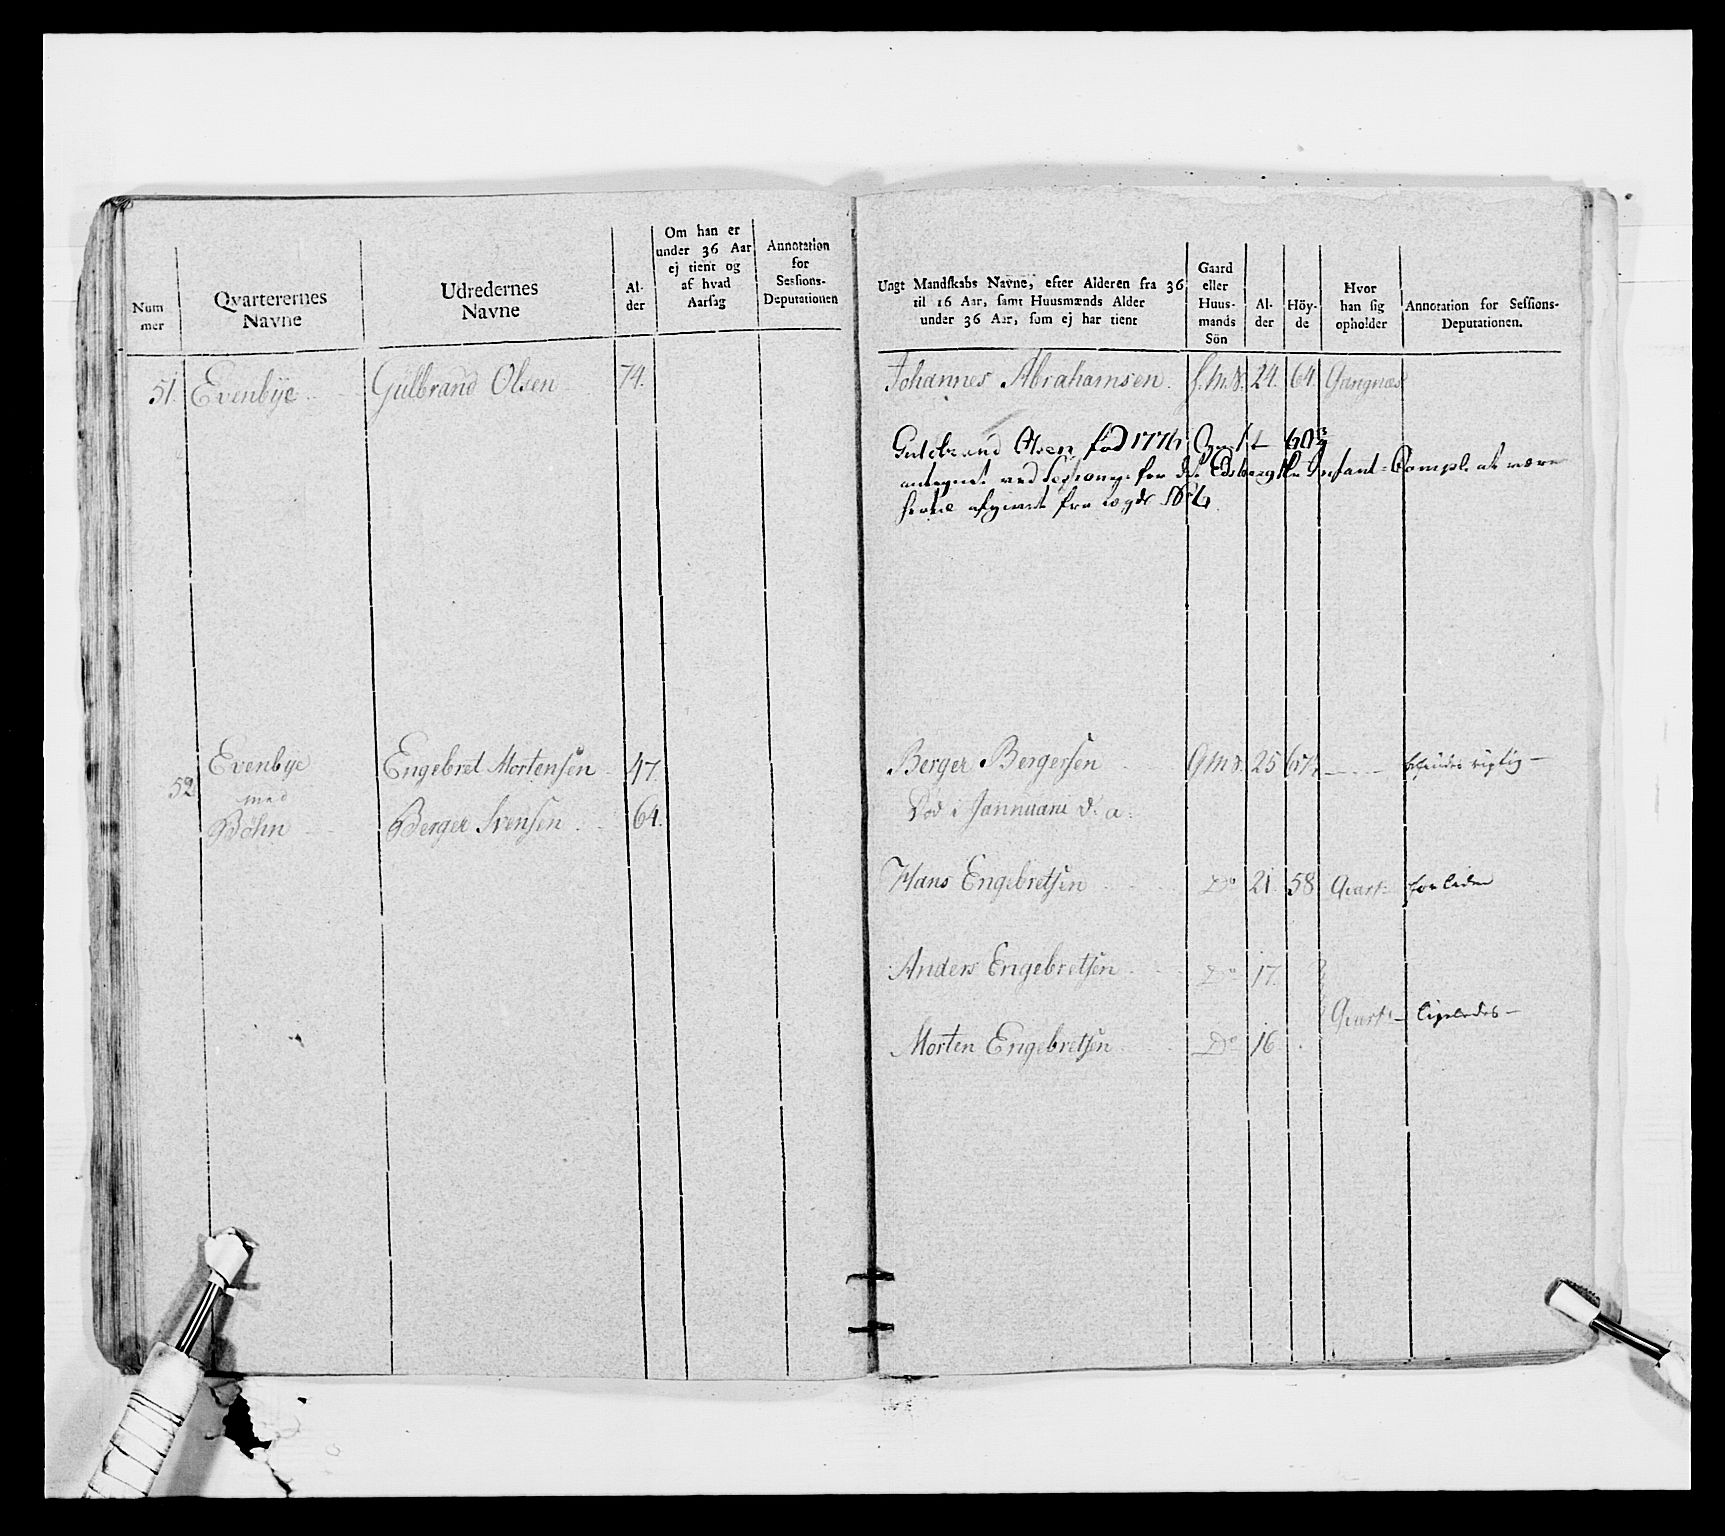 Num
mer
Qvarterernes
Navne
Udredernes
Navne
Al-
der
Om han er
under 36 Aar
ej tient og
af hvad
Aarsag
Annotation
for
Sessions-
Deputationen
51. Evenbye Gulbrand Olsen 74.
Evenbye Engebret Mortensen 47.
52
med
Bøhn Berger Svensen 64.
Ungt Mandskabs Navne, efter Alderen fra 36
til 16 Aar, samt Huusmænds Alder
under 36 Aar, som ej har tient
Gaard
eller
Huus-
mands
Sön
Al-
der
Höy-
de
Hvor
han sig
opholder
Annotation for Sessions-
Deputationen.
Johannes Abrahamsen. 24. 64. Gangnæs
Guldbrand Olsen fød 1776 60¾
antegnet ved for det Infant Comp. at være
fra Lægd
Berger Bergersen G.M.S. 25 rigtig —
Død i Jannuari d. a.
Hans Engebretsen Do 21. 58 Qvart: forleden
Anders Engebretsen Do 17.
Qvart: — ligeledes —
Morten Engebretsen Do 16